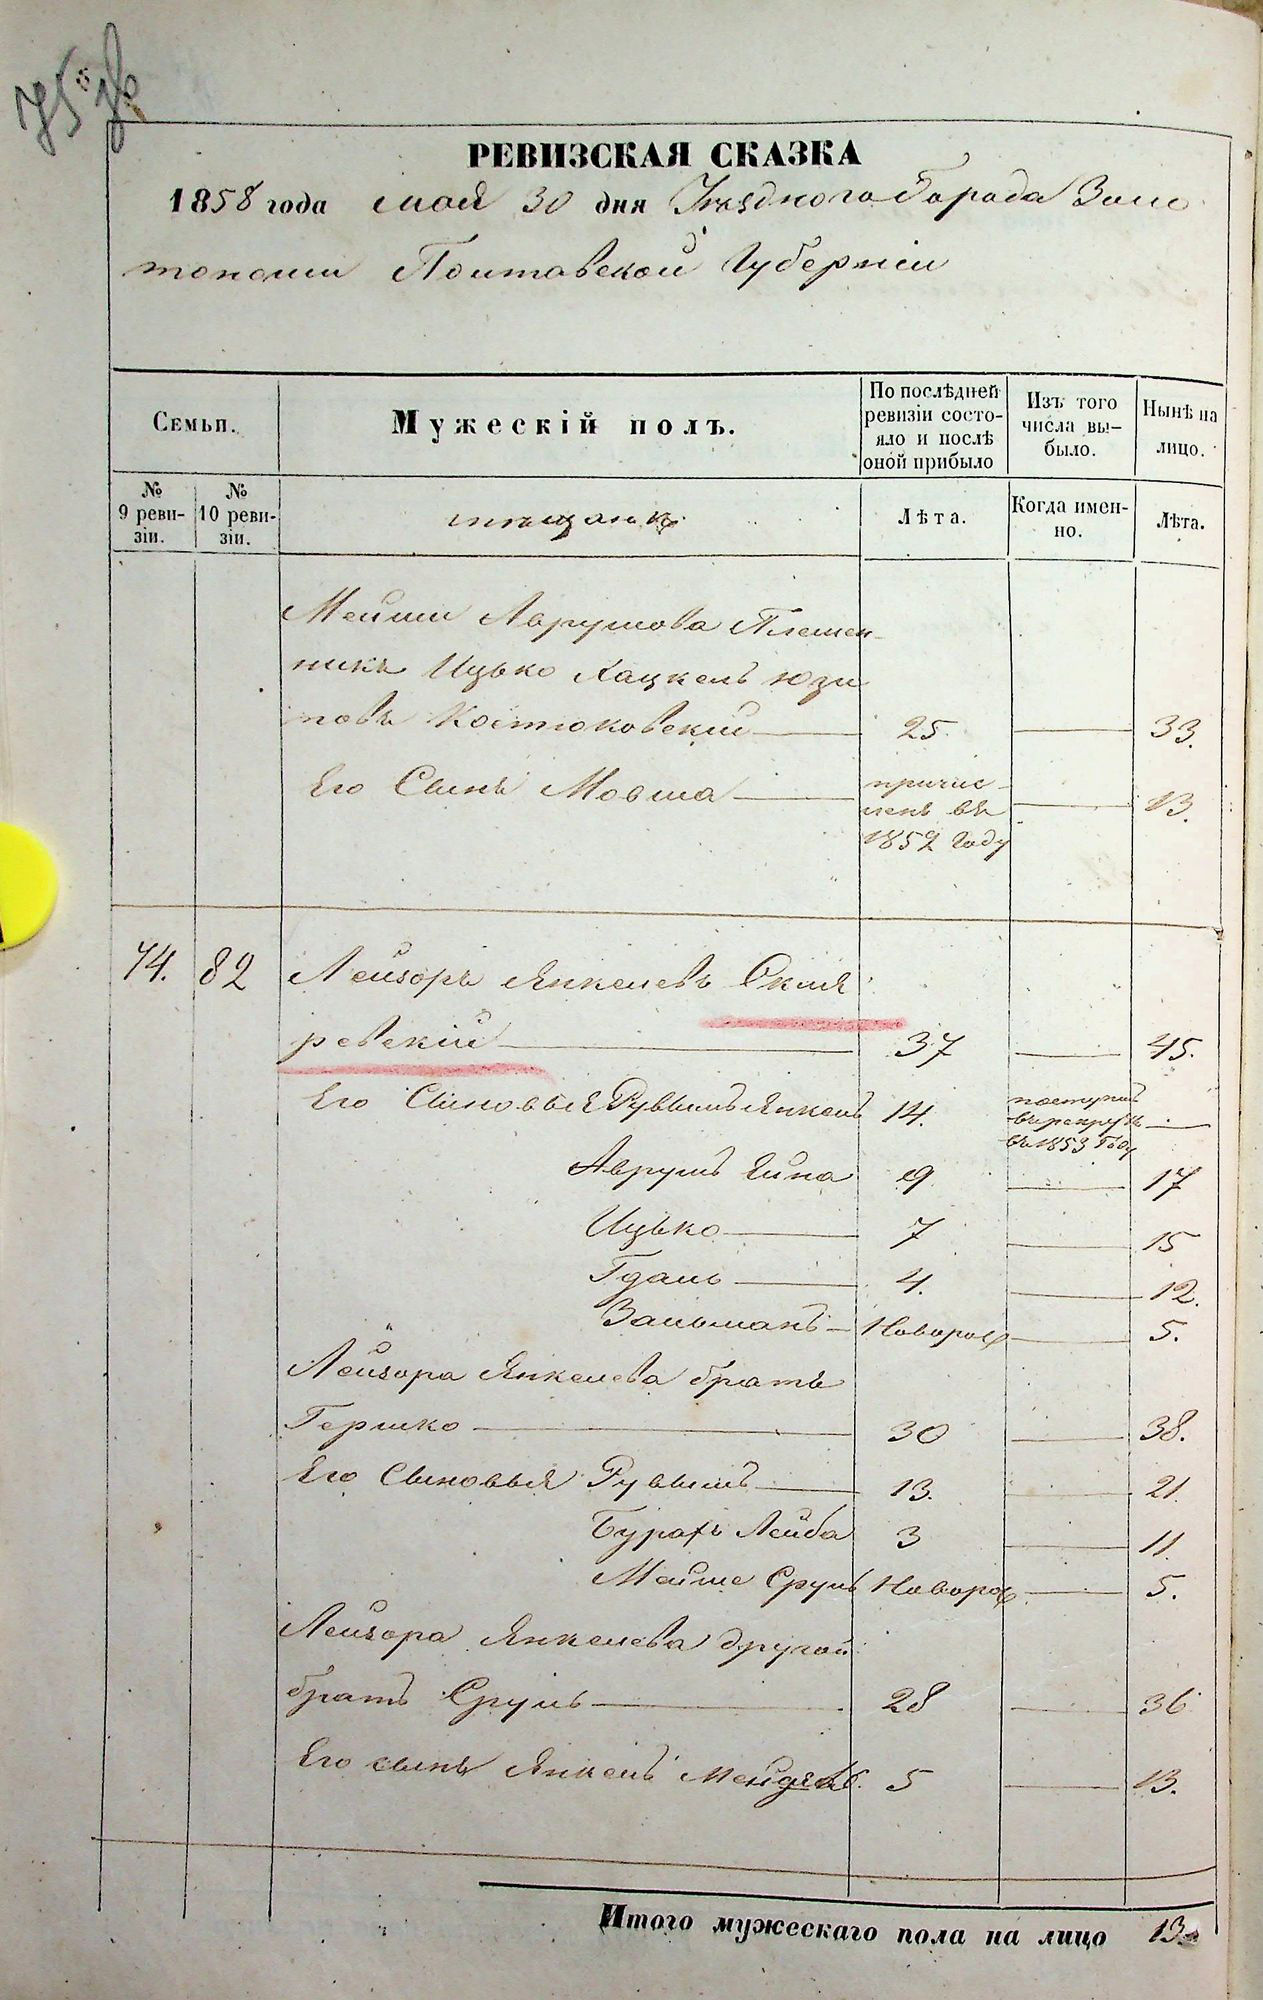 75
РЕВИЗСКАЯ СКАЗКА
1858 года мая 30 дня Уѣзднаго Города Золо
тоноши Полтавской Губерніи
Семьи.
Мужескій полъ.
По послѣдней ревизіи состо-
яло и послѣ оной прибыло
Изъ того числа вы-
было.
Нынѣ на лицо.
№ 9 реви-
зіи.
№ 10 реви-
зіи.
мѣщанъ
Лѣта.
Когда имен-
но.
Лѣта.
Мейши Аврумова Племен
никъ Ицько Хацкель
Костюковскій 25. 33.
Его Сынъ Мовша причис
ленъ въ
1852 году 13.
74. 82 Лейзоръ Янкелевъ Скля
ревскій 37 45.
Его Сыновья Рувымъ Янкель 14. поступилъ
въ рекруты
въ 1853 году
Аврумъ 9 17
Ицько 7 15
Гдаль 4. 12.
ЗальманъНоворож 5.
Лейзора Янкелева братъ
Гершко 30 38.
Его Сыновья Рувымъ 13. 21.
Бурахъ Лейба 3 11.
Мейше Сруль Новорож 5.
Лейзора Янкелева другой
братъ Сруль 28 36
Его сынъ Янкель 5 13.
Итого мужескаго пола на лицо 13